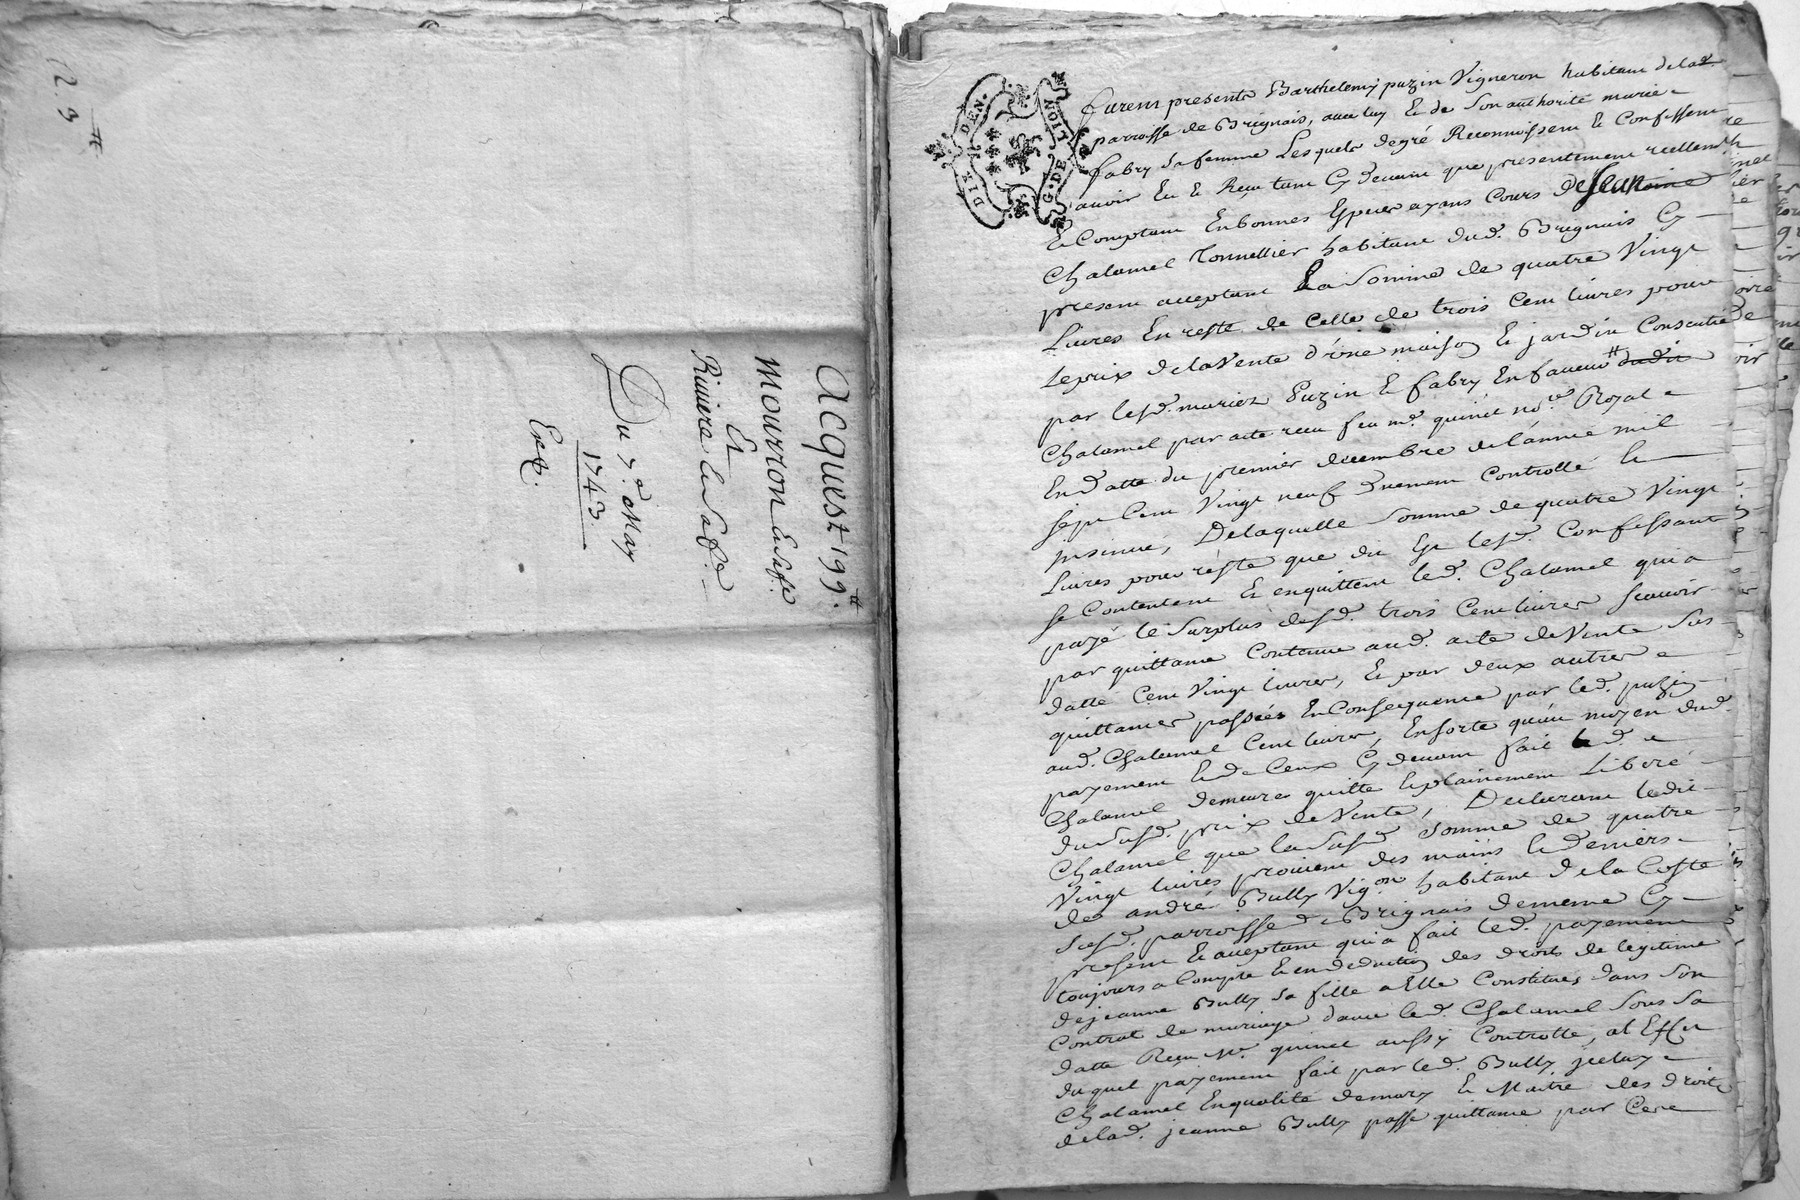 12 9 ₶
Acquest 199 ₶
Mourron
Et
Riviere
Du 7e May
1743
Ext.
DIX DEN. G. DE LION
furent presents Barthelemy puzin Vigneron habitant de la
parroisse de Brignais, avec luy Et de Son authorité marie
fabry Sa femme Lesquels de gré Reconnoissent Et Confessent
avoir Eu Et Reçu tant Cy devant que presentement reellement
Et Comptant En bonnes Especes ayans Cours de Jean
Chalamel Tonnellier habitant dud. Brignais Cy
present acceptant La Somme de quatre Vingt
Livres En reste de Celle de trois Cent livres pour
Le prix de la Vente d'une maison Et jardin Consentie
par lesd. mariez Puzin Et fabry En faveur dudit
Chalamel par acte reçu feu me. quinet nore. Royal
En datte du premier decembre de l'année mil
sept Cent Vingt neuf düement Controllé Et
insinué, De laquelle Somme de quatre Vingt
Livres pour reste que dit Est lesd. Confessants
se Contentent Et en quittent led. Chalamel qui a
payé le Surplus desd. trois Cent livres scavoir
par quittance Contenue aud. acte de Vente Sus
datté Cent Vingt livres, Et par deux autres
quittances passées En Consequence par led. puzin
aud. Chalamel Cent livres, En sorte qu'au moyen dud.
payement Et de Ceux Cy devant fait led.
Chalamel demeure quitte Et plainement Liberé
du Susd. prix de Vente, Declarant ledit
Chalamel que la Susd. Somme de quatre
Vingt livres provient des mains Et deniers
de andré Bully Vigon habitant de la Coste
Susd. parroisse de Brignais de meme Cy
present Et acceptant qui a fait led. payement
toujours a Compte Et en deduction des droits de legitime
de jeanne Bully Sa fille a Elle Constitués dans Son
Contrat de mariage d'avec led. Chalamel Sous Sa
datte Reçu Me. quinet aussy Controllé, al Effet
duquel payement fait par led. Bully jceluy
Chalamel En qualité de mary Et Maitre des droits
de lad. jeanne Bully passe quittance par Cere